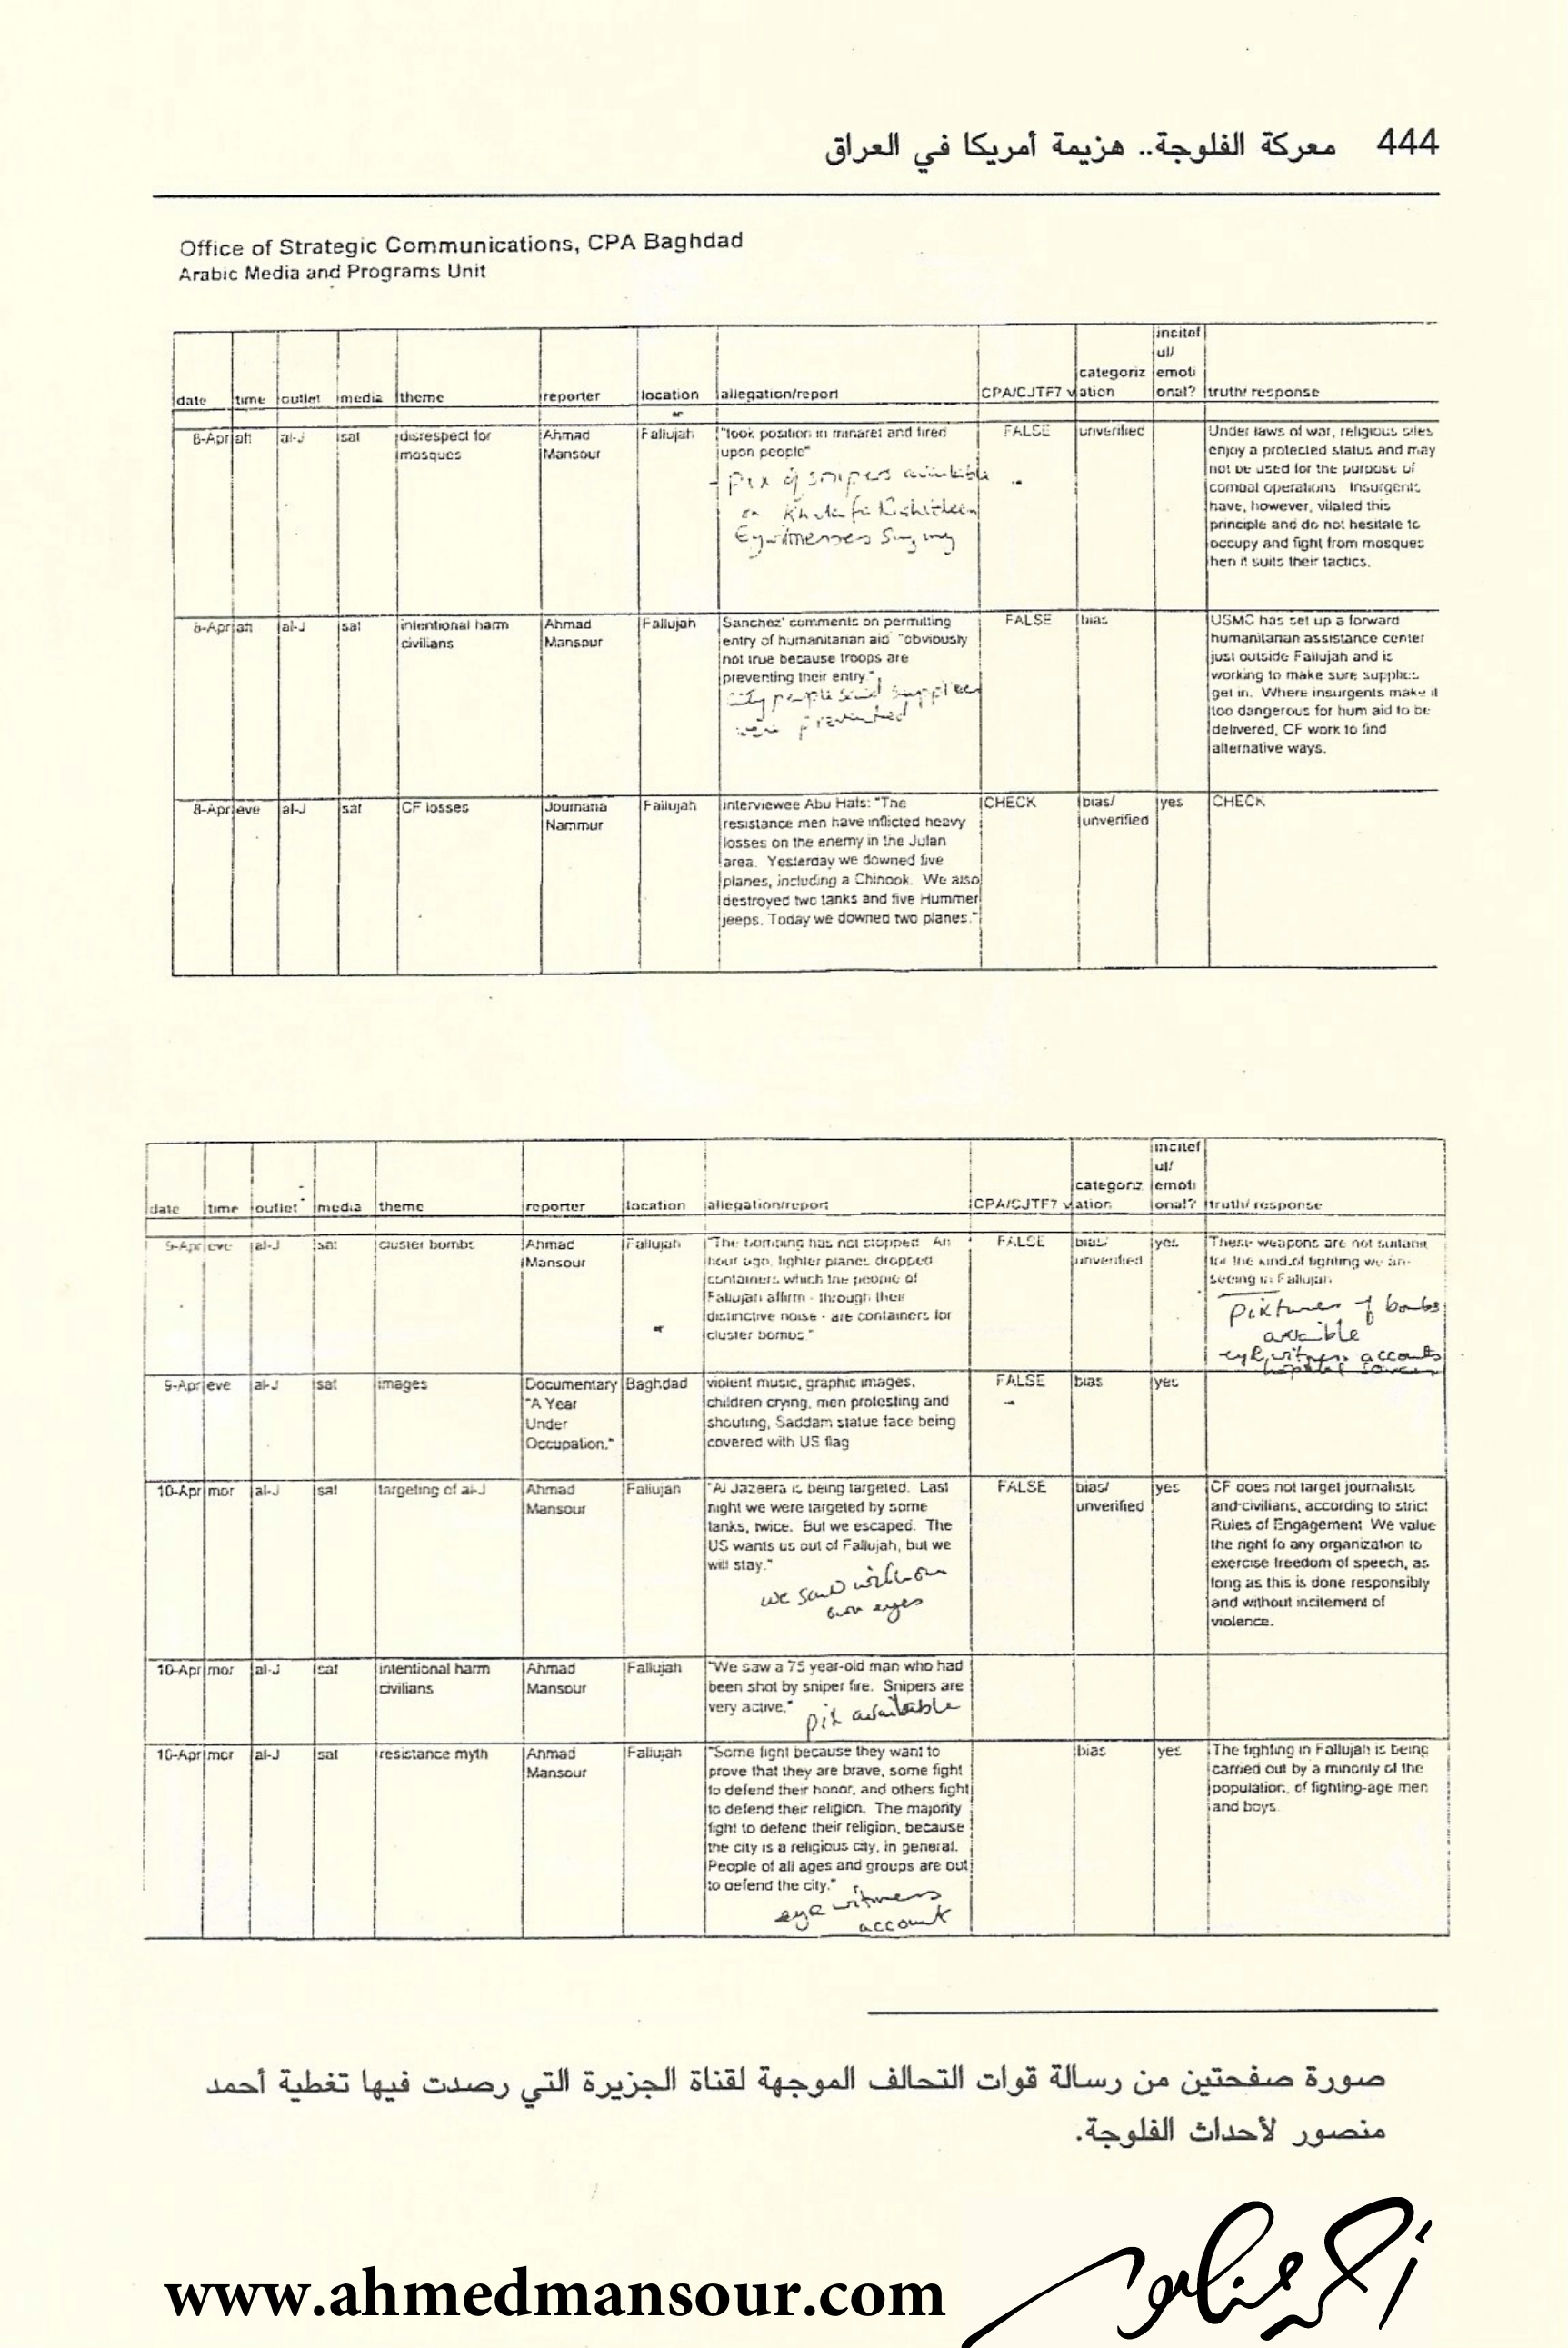 444 معركة الفلوجة.. هزيمة أمريكا في العراق
Office of Strategic Communications, CPA Baghdad
Arabic Media and Programs Unit
date time outlet media theme reporter location allegation/report CPA/CJTF7 v categoriz ation incitef ul/ emoti onal? truth/ response
8-Apr aft al-J sat disrespect for mosques Ahmad Mansour Fallujah "took position in minaret and fired upon people" FALSE unverified
pix of snipers available
Eyewitnesses
Under laws of war, religious sites
enjoy a protected status and may
not be used for the purpose of
combat operations. Insurgents
have, however, vilated this
principle and do not hesitate to
occupy and fight from mosques
hen it suits their tactics.
8-Apr aft al-J sat intentional harm civilians Ahmad Mansour Fallujah
Sanchez' comments on permitting
entry of humanitarian aid "obviously
not true because troops are
preventing their entry."
city people said supplies
were prevented
FALSE bias
USMC has set up a forward
humanitarian assistance center
just outside Fallujah and is
working to make sure supplies
get in. Where insurgents make it
too dangerous for hum aid to be
delivered, CF work to find
alternative ways.
8-Apr eve al-J sat CF losses Joumana Nammur Fallujah
interviewee Abu Hafs: "The
resistance men have inflicted heavy
losses on the enemy in the Julan
area. Yesterday we downed five
planes, including a Chinook. We also
destroyed two tanks and five Hummer
jeeps. Today we downed two planes."
CHECK bias/ unverified yes CHECK
date time outlet media theme reporter location allegation/report CPA/CJTF7 v categoriz ation incitef ul/ emoti onal? truth/ response
9-Apr eve al-J sat cluster bombs Ahmad Mansour Fallujah
"The bombing has not stopped. An
hour ago, fighter planes dropped
containers which the people of
Fallujah affirm - through their
distinctive noise - are containers for
cluster bombs."
FALSE bias/ unverified yes
These weapons are not suitable
for the kind of fighting we are
seeing in Fallujah
pixtures of bombs
avaible
eye witness accounts
hospital sources
9-Apr eve al-J sat images Documentary "A Year Under Occupation." Baghdad
violent music, graphic images,
children crying, men protesting and
shouting, Saddam statue face being
covered with US flag
FALSE bias yes
10-Apr mor al-J sat targeting of al-J Ahmad Mansour Fallujah
"Al Jazeera is being targeted. Last
night we were targeted by some
tanks, twice. But we escaped. The
US wants us out of Fallujah, but we
will stay."
we saw with our
own eyes
FALSE bias/ unverified yes
CF does not target journalists
and civilians, according to strict
Rules of Engagement. We value
the right fo any organization to
exercise freedom of speech, as
long as this is done responsibly
and without incitement of
violence.
10-Apr mor al-J sat intentional harm civilians Ahmad Mansour Fallujah
"We saw a 75 year-old man who had
been shot by sniper fire. Snipers are
very active."
pix available
10-Apr mor al-J sat resistance myth Ahmad Mansour Fallujah
"Some fight because they want to
prove that they are brave, some fight
to defend their honor, and others fight
to defend their religion. The majority
fight to defend their religion, because
the city is a religious city, in general.
People of all ages and groups are out
to defend the city."
eye witness
account
bias yes
The fighting in Fallujah is being
carried out by a minority of the
population, of fighting-age men
and boys.
صورة صفحتين من رسالة قوات التحالف الموجهة لقناة الجزيرة التي رصدت فيها تغطية أحمد
منصور لأحداث الفلوجة.
www.ahmedmansour.com
أحمد منصور